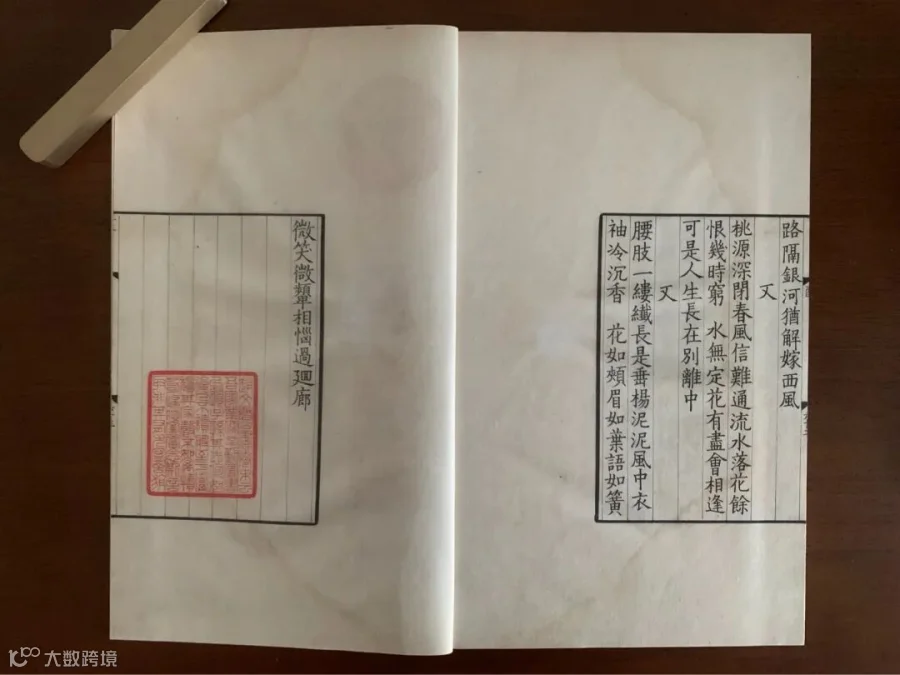 路隔銀河猶解嫁西風
又
桃源深閉春風信難通流水落花餘
恨幾時窮 水無定花有盡會相逢
可是人生長在別離中
又
腰肢一縷纖長是垂楊泥泥風中衣
袖冷沉香 花如頰眉如葉語如簧
微笑微顰相惱過迴廊
大数跨境